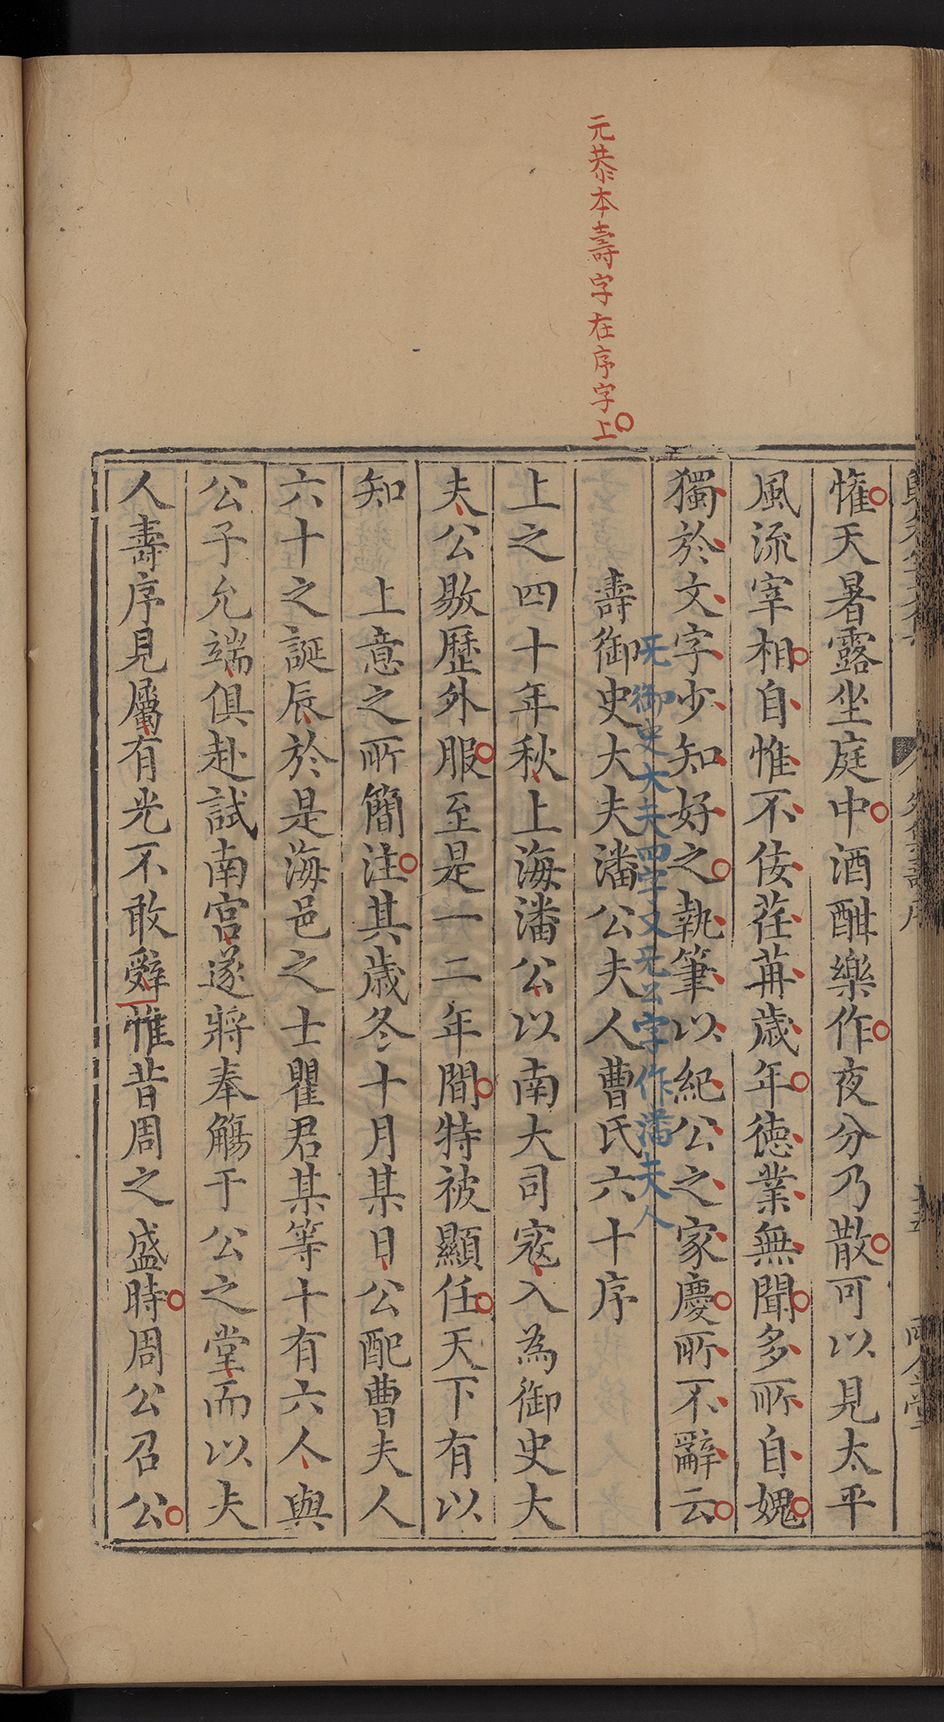 元恭本壽字在序字上
惟天暑露坐庭中酒酣樂作夜分乃散可以見太平
風流宰相自惟不佞荏苒歲年德業無聞多所自媿
獨於文字少知好之執筆以紀公之家慶所不辭云
无御史大夫四字又无公字作潘夫人
壽御史大夫潘公夫人曹氏六十序
上之四十年秋上海潘公以南大司寇入為御史大
夫公敭歷外服至是一二年間特被顯任天下有以
知　上意之所簡注其歲冬十月某日公配曹夫人
六十之誕辰於是海邑之士瞿君某等十有六人與
公子允端俱赴試南宮遂將奉觴于公之堂而以夫
人壽序見屬有光不敢辭惟昔周之盛時周公召公